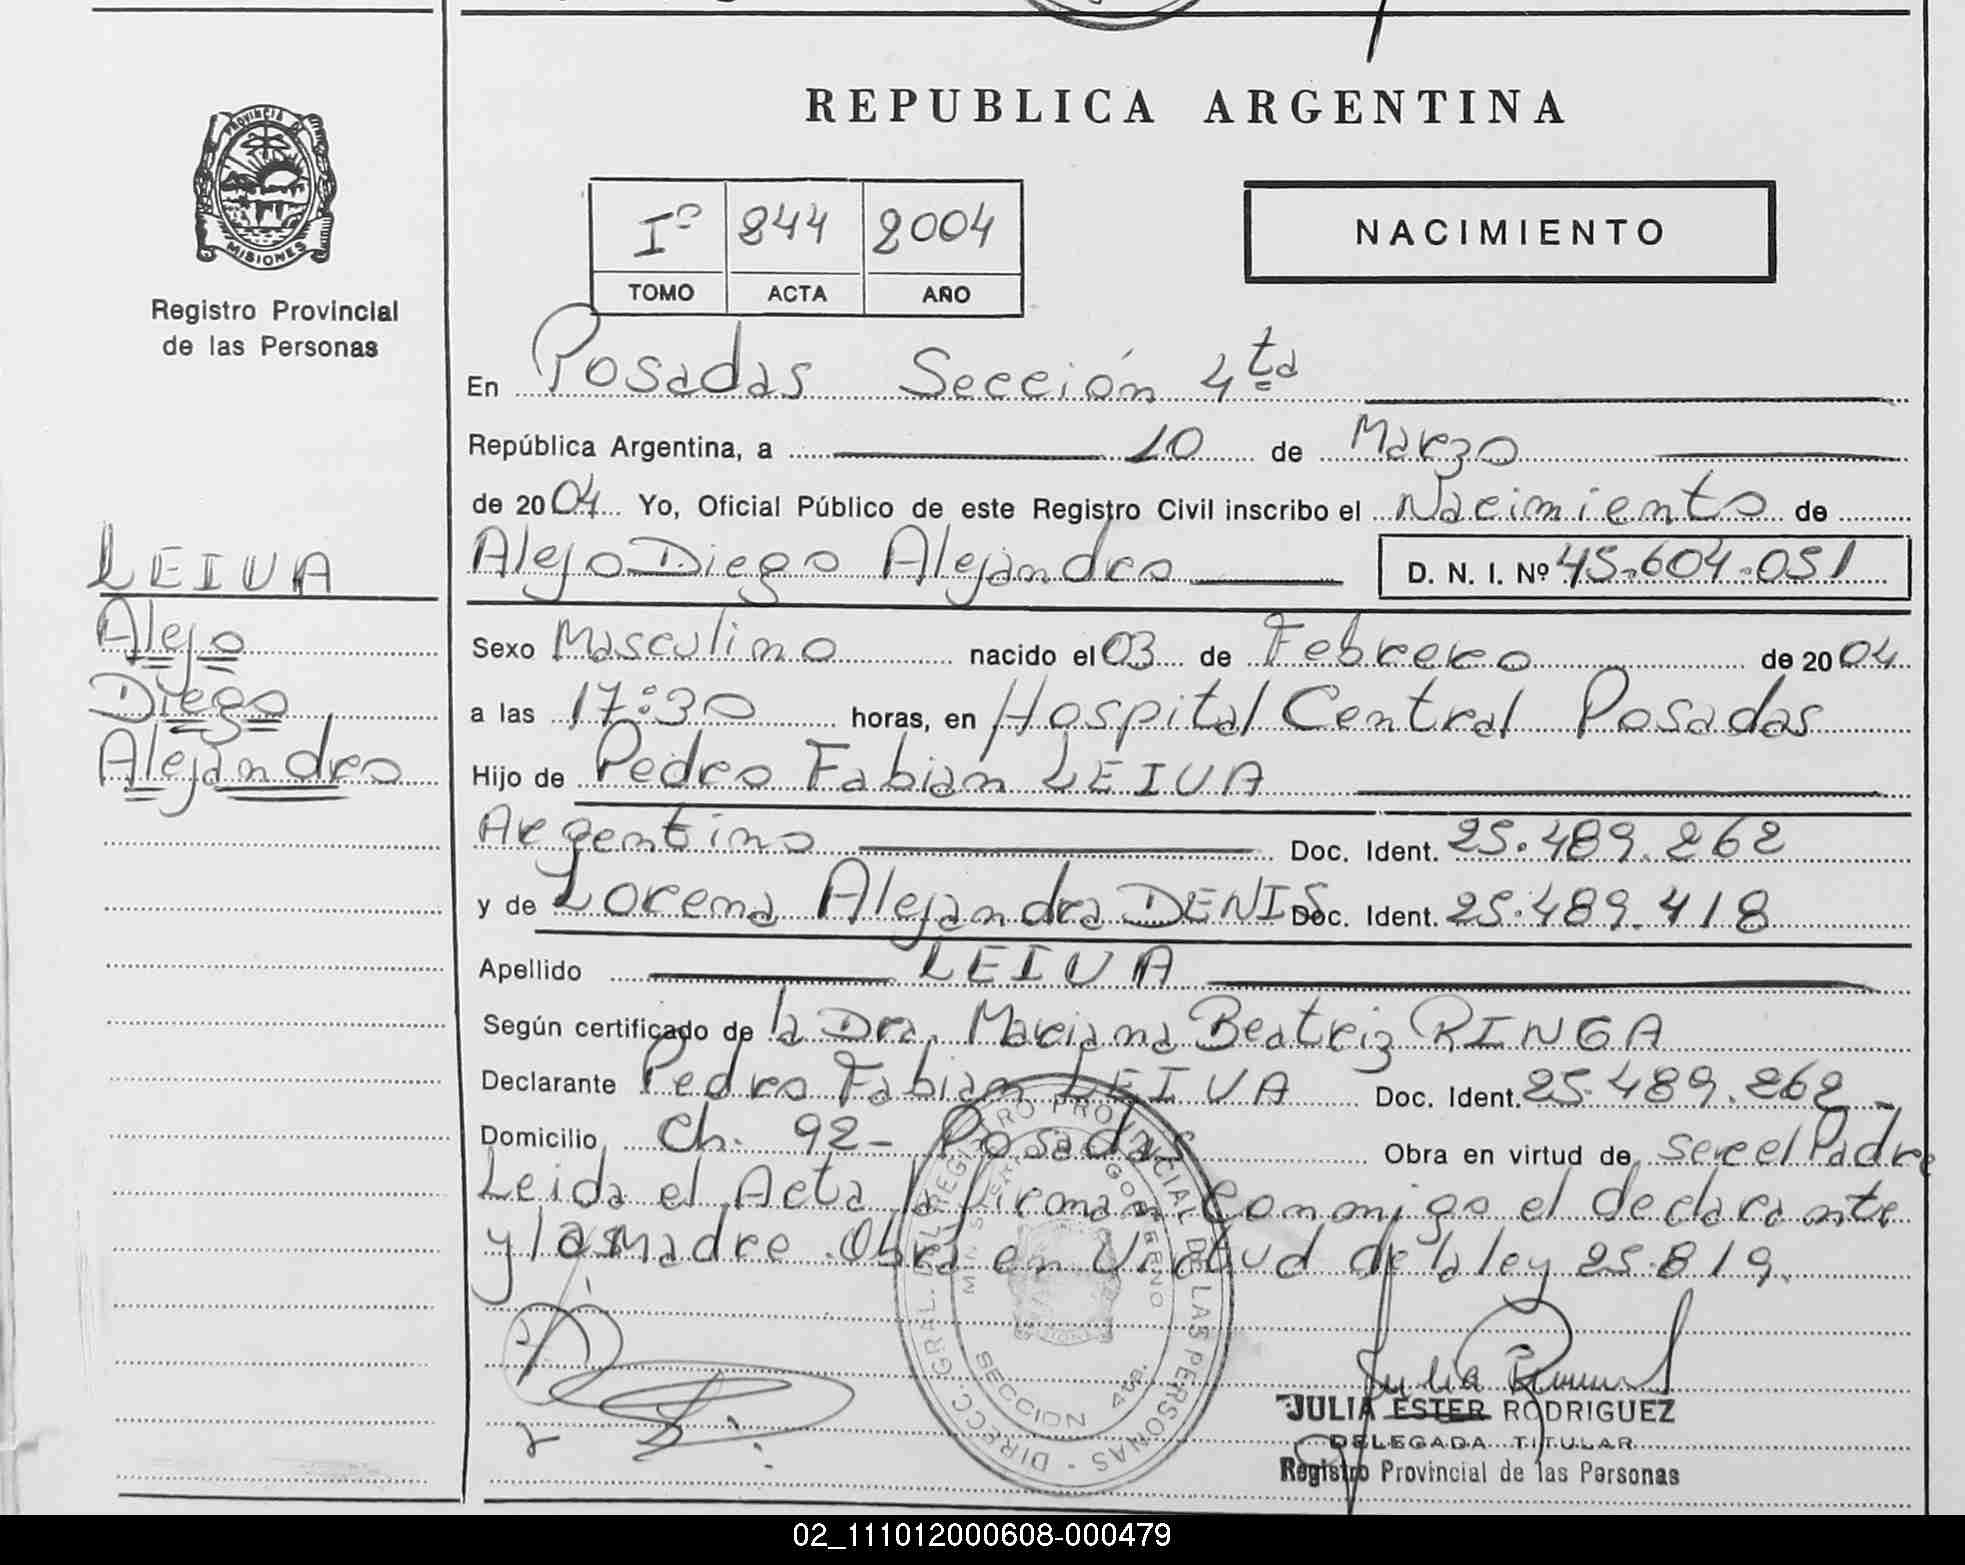 REPUBLICA ARGENTINA
PROVINCIA DE
MISIONES
Registro Provincial
de las Personas
Iº 844 2004
TOMO ACTA AÑO
NACIMIENTO
En Posadas Sección 4ta
República Argentina, a 10 de Marzo
de 2004 Yo, Oficial Público de este Registro Civil inscribo el Nacimiento de
Alejo Diego Alejandro D. N. I. Nº 45.604.051
LEIVA
Alejo
Diego
Alejandro
Sexo Masculino nacido el 03 de Febrero de 2004
a las 17:30 horas, en Hospital Central Posadas
Hijo de Pedro Fabian LEIVA
Argentino Doc. Ident. 25.489.262
y de Lorena Alejandra DENIS Doc. Ident. 25.489.418
Apellido LEIVA
Según certificado de la Dra. Mariana Beatriz RINGA
Declarante Pedro Fabian LEIVA Doc. Ident. 25.489.262-
Domicilio Ch. 92- Posadas Obra en virtud de ser el Padre
Leida el Acta la firman conmigo el declarante
y la madre. Obra en Virtud de la ley 25.819.
DIRECC. GRAL. DEL REGISTRO PROVINCIAL DE LAS PERSONAS
MINISTERIO GOBIERNO
SECCION 4ta.
JULIA ESTER RODRIGUEZ
DELEGADA TITULAR
Registro Provincial de las Personas
02_111012000608-000479